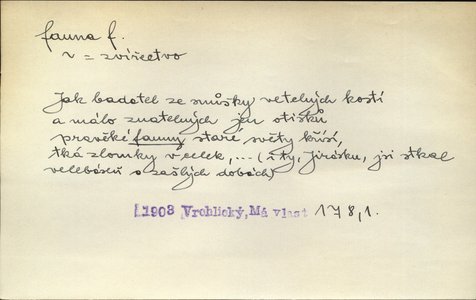 fauna f.
v = zvířectvo
Jak badatel ze směsky vetelných kostí
a málo znatelných jen otisků
pravěké fauny staré světy křísí,
tká zlomky v celek, ... (i ty, Jirásku, jsi tkal
velebásň o zašlých dobách)
1908 Vrchlický, Má vlast 178,1.